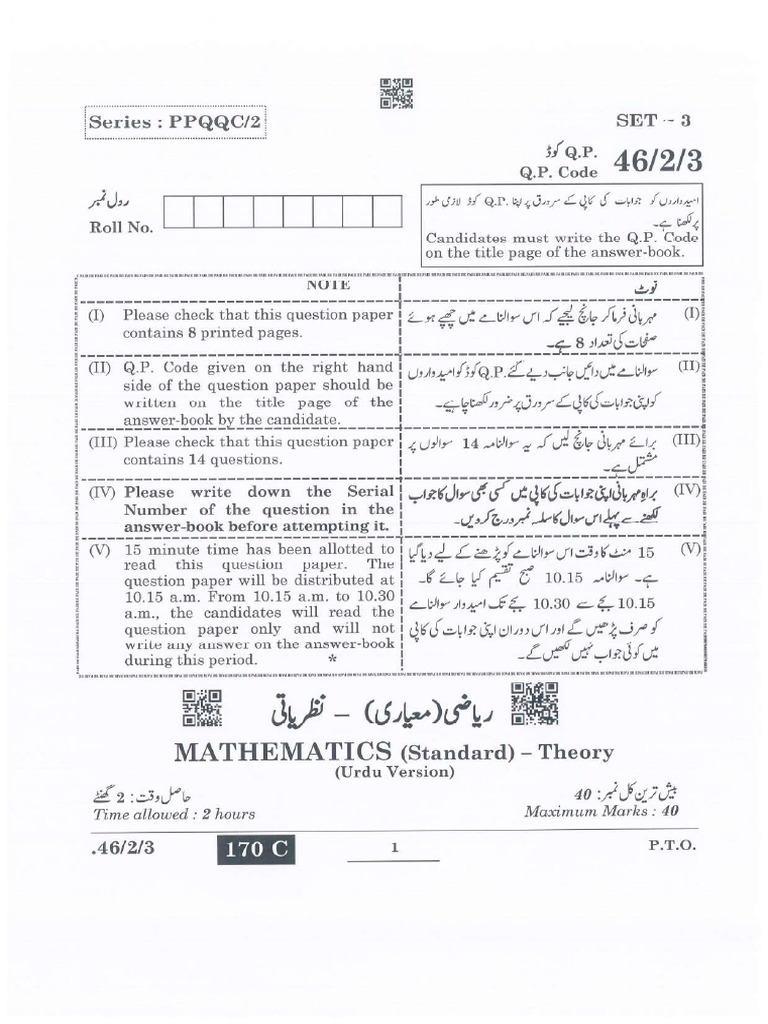 Series : PPQQC/2
SET - 3
Q.P. کوڈ
Q.P. Code
46/2/3
رول نمبر
Roll No.
امیدواروں کو جوابات کی کاپی کے سرورق پر اپنا Q.P. کوڈ لازمی طور
پر لکھنا ہے۔
Candidates must write the Q.P. Code
on the title page of the answer-book.
NOTE
(I) Please check that this question paper
contains 8 printed pages.
(II) Q.P. Code given on the right hand
side of the question paper should be
written on the title page of the
answer-book by the candidate.
(III) Please check that this question paper
contains 14 questions.
(IV) Please write down the Serial
Number of the question in the
answer-book before attempting it.
(V) 15 minute time has been allotted to
read this question paper. The
question paper will be distributed at
10.15 a.m. From 10.15 a.m. to 10.30
a.m., the candidates will read the
question paper only and will not
write any answer on the answer-book
during this period. *
نوٹ
(I) مہربانی فرماکر جانچ لیجیے کہ اس سوالنامے میں چھپے ہوئے
صفحات کی تعداد 8 ہے۔
(II) سوالنامے میں دائیں جانب دیے گئے Q.P. کوڈ کو امیدواروں
کو اپنی جوابات کی کاپی کے سرورق پر ضرور لکھنا چاہیے۔
(III) برائے مہربانی جانچ لیں کہ یہ سوالنامہ 14 سوالوں پر
مشتمل ہے۔
(IV) براہ مہربانی اپنی جوابات کی کاپی میں کسی بھی سوال کا جواب
لکھنے سے پہلے اس سوال کا سلسلہ نمبر درج کر دیں۔
(V) 15 منٹ کا وقت اس سوالنامے کو پڑھنے کے لیے دیا گیا
ہے۔ سوالنامہ 10.15 صبح تقسیم کیا جائے گا۔
10.15 بجے سے 10.30 بجے تک امیدوار سوالنامے
کو صرف پڑھیں گے اور اس دوران اپنی جوابات کی کاپی
میں کوئی جواب نہیں لکھیں گے۔
ریاضی (معیاری) – نظریاتی
MATHEMATICS (Standard) – Theory
(Urdu Version)
حاصل وقت : 2 گھنٹے
بیش ترین کل نمبر : 40
Time allowed : 2 hours
Maximum Marks : 40
.46/2/3
170 C
1
P.T.O.